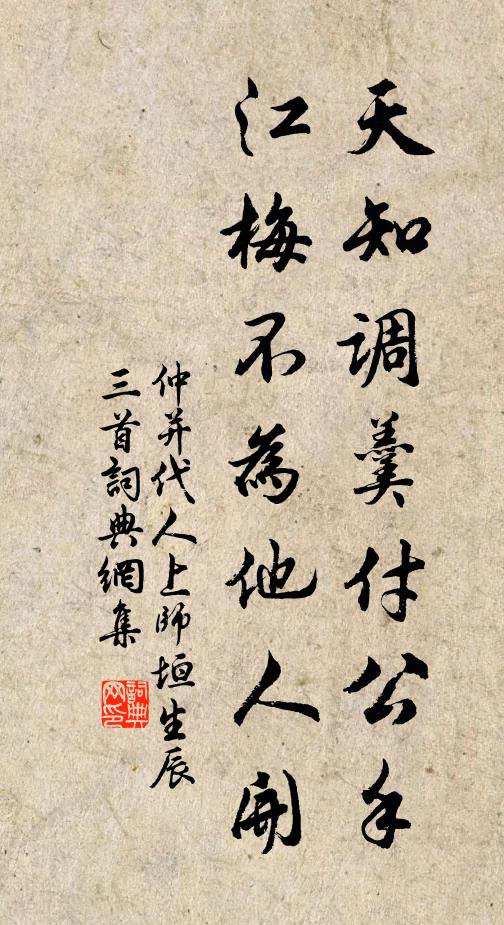 天知調羹付公手
江梅不為他人開
仲并代人上師垣生辰
三首詞典網集
詞典
网印